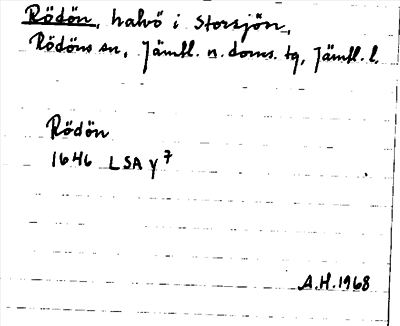 Rödön, halvö i Storsjön,
Rödöns sn, Jämtl. n. doms. tg, Jämtl. l.
Rödön
1646 LSA Y 7
A.H. 1968